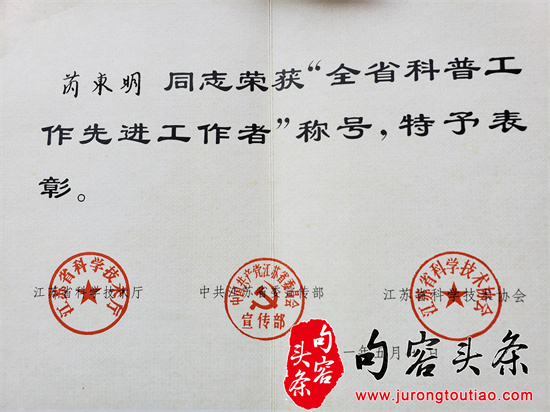 芮東明 同志荣获“全省科普工
作先进工作者”称号，特予表
彰。
江苏省科学技术厅
中共江苏省委宣传部
江苏省科学技术协会
江苏省科学技术厅
中国共产党江苏省委员会
宣传部
江苏省科学技术协会
一年五月 日
句容
头条
句容头条
www.jurongtoutiao.com